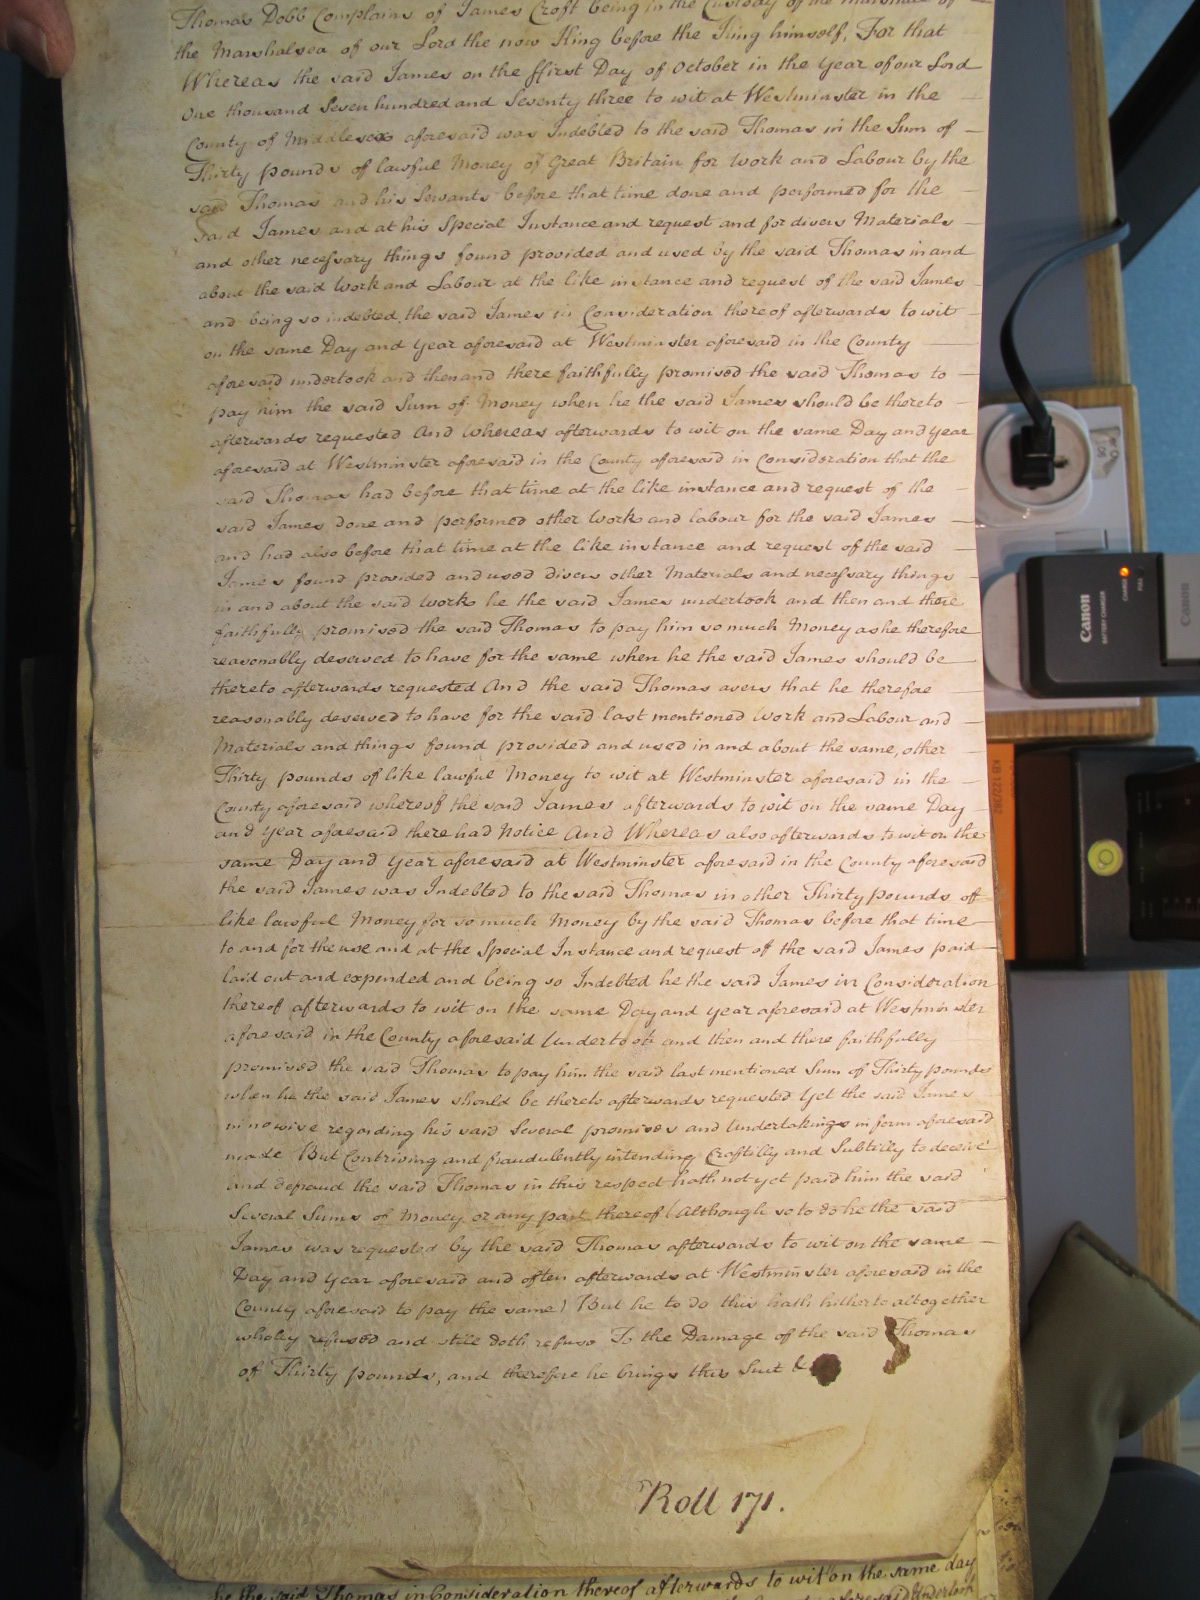 Thomas Dobb Complains of James Croft being in the Custody of the Marshal of
the Marshalsea of our Lord the now King before the King himself, For that
Whereas the said James on the ffirst Day of October in the Year of our Lord
One thousand Seven hundred and Seventy three to wit at Westminster in the
County of Middlesex aforesaid was Indebted to the said Thomas in the Sum of
Thirty pounds of lawful Money of Great Britain for Work and Labour by the
said Thomas and his Servants before that time done and performed for the
said James and at his Special Instance and request and for divers Materials
and other necessary things found provided and used by the said Thomas in and
about the said Work and Labour at the like instance and request of the said James
and being so indebted the said James in Consideration thereof afterwards to wit
on the same Day and Year aforesaid at Westminster aforesaid in the County
aforesaid undertook and then and there faithfully promised the said Thomas to
pay him the said Sum of Money when he the said James should be thereto
afterwards requested And Whereas afterwards to wit on the same Day and Year
aforesaid at Westminster aforesaid in the County aforesaid in Consideration that the
said Thomas had before that time at the like instance and request of the
said James done and performed other Work and labour for the said James
and had also before that time at the like instance and request of the said
James found provided and used divers other Materials and necessary things
in and about the said Work he the said James undertook and then and there
faithfully promised the said Thomas to pay him so much Money as he therefore
reasonably deserved to have for the same when he the said James should be
thereto afterwards requested And the said Thomas avers that he therefore
reasonably deserved to have for the said last mentioned Work and Labour and
Materials and things found provided and used in and about the same, other
Thirty pounds of like lawful Money to wit at Westminster aforesaid in the
County aforesaid whereof the said James afterwards to wit on the same Day
and Year aforesaid there had Notice And Whereas also afterwards to wit on the
same Day and Year aforesaid at Westminster aforesaid in the County aforesaid
the said James was Indebted to the said Thomas in other Thirty pounds of
like lawful Money for so much Money by the said Thomas before that time
to and for the use and at the Special Instance and request of the said James paid
laid out and expended and being so Indebted he the said James in Consideration
thereof afterwards to wit on the same Day and Year aforesaid at Westminster
aforesaid in the County aforesaid Undertook and then and there faithfully
promised the said Thomas to pay him the said last mentioned Sum of Thirty pounds
when he the said James should be thereto afterwards requested Yet the said James
in no wise regarding his said Several promises and Undertakings in form aforesaid
made But Contriving and fraudulently intending Craftilly and Subtilly to deceive
and defraud the said Thomas in this respect hath not yet paid him the said
Several Sums of Money or any part thereof (Although so to do he the said
James was requested by the said Thomas afterwards to wit on the same
Day and Year aforesaid and often afterwards at Westminster aforesaid in the
County aforesaid to pay the same) But he to do this hath hitherto altogether
wholly refused and still doth refuse To the Damage of the said Thomas
of Thirty pounds, and therefore he brings this Suit &
Roll 171.
he the said Thomas in Consideration thereof afterwards to wit on the same day
Undertook
Canon
BATTERY CHARGER
CHARGE
FULL
Canon
KB 122/382